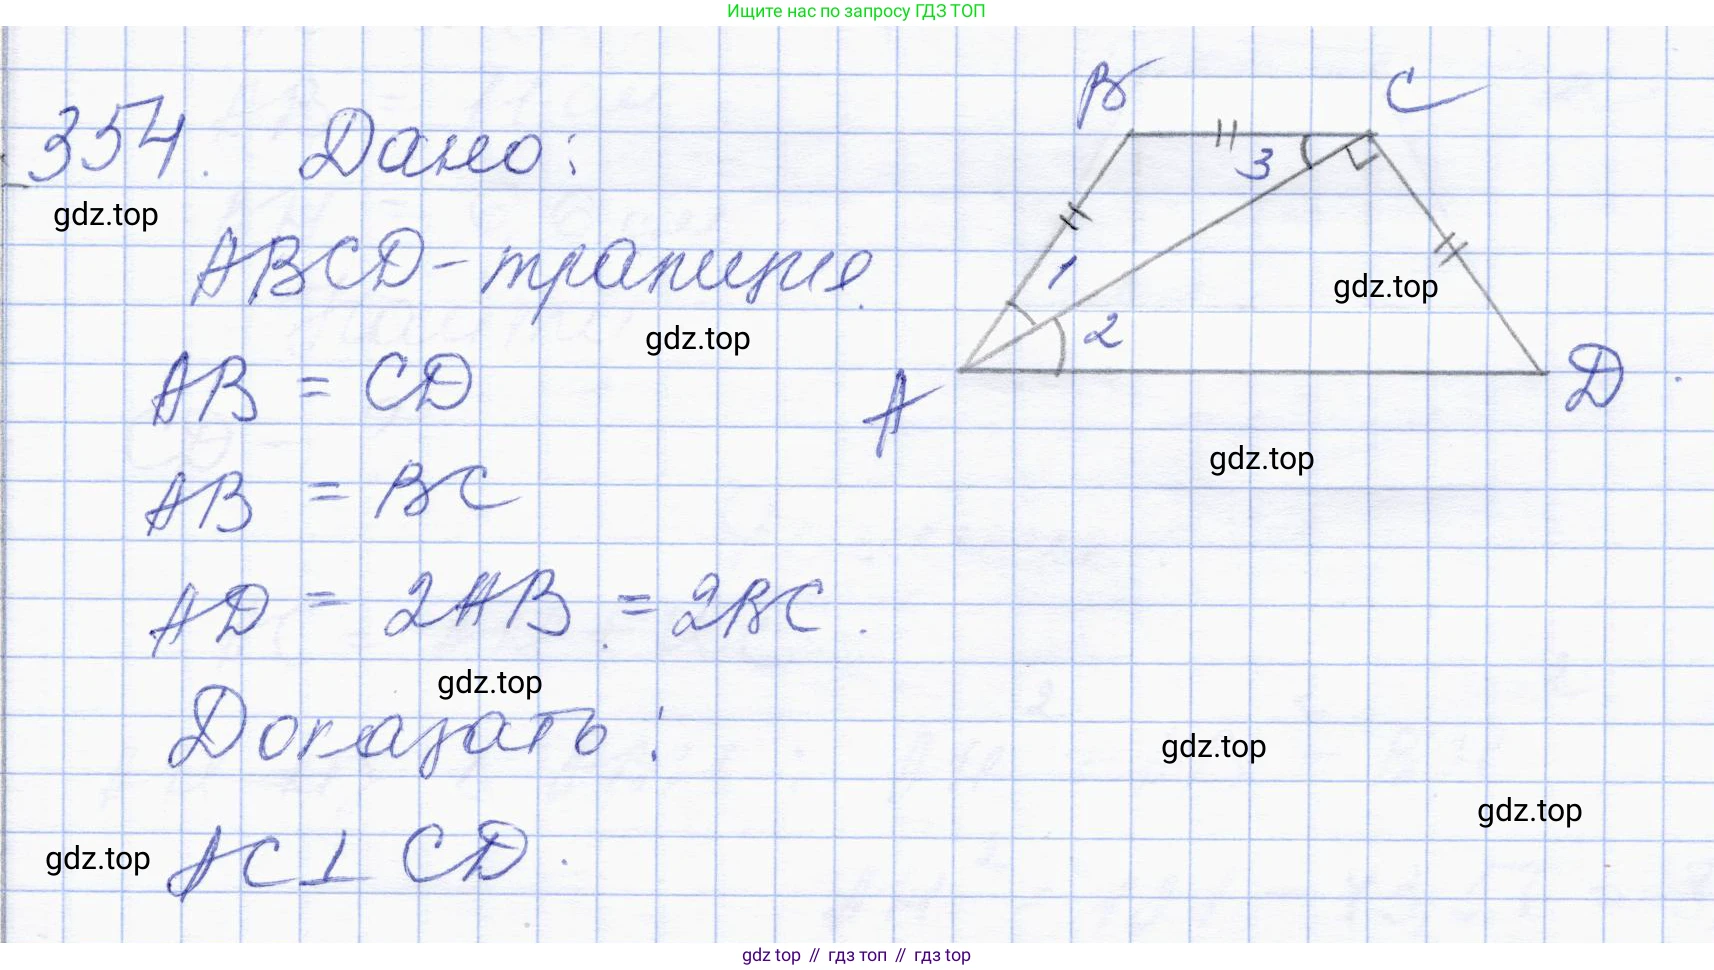 Ищите нас по запросу ГДЗ ТОП
354. Дано:
B C
3
gdz.top
ABCD - трапеция.
1
gdz.top
2
gdz.top
AB = CD
A D
gdz.top
AB = BC
AD = 2AB = 2BC.
gdz.top
Доказать:
gdz.top
gdz.top
gdz.top
AC ⊥ CD.
gdz.top // гдз топ // gdz top